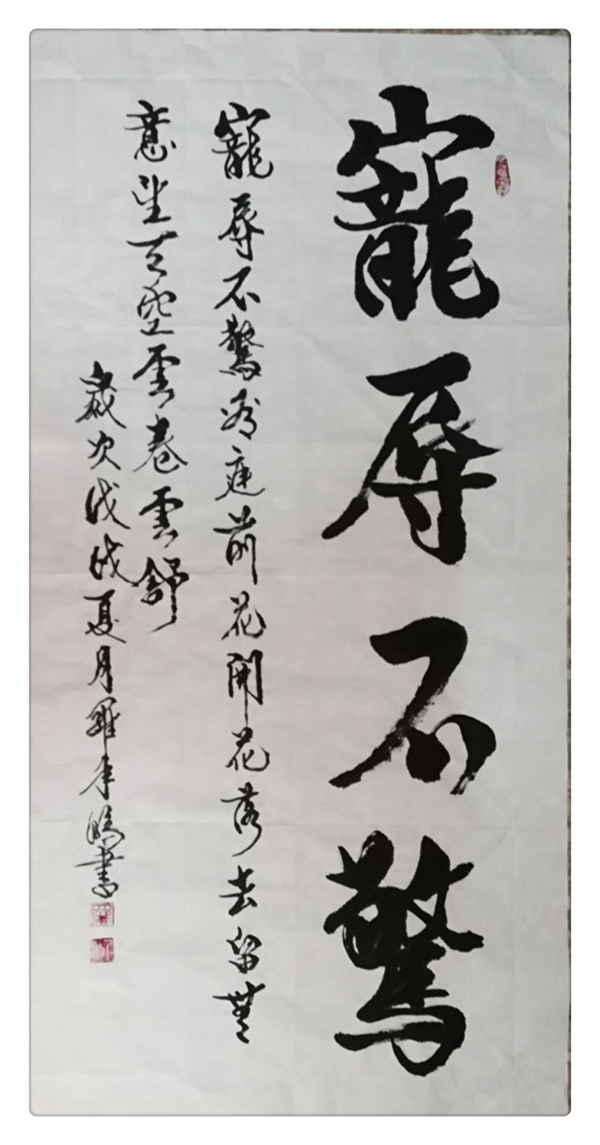 寵辱不驚
寵辱不驚看庭前花開花落去留無
意望天空雲卷雲舒
歲次戊戌夏月羅書